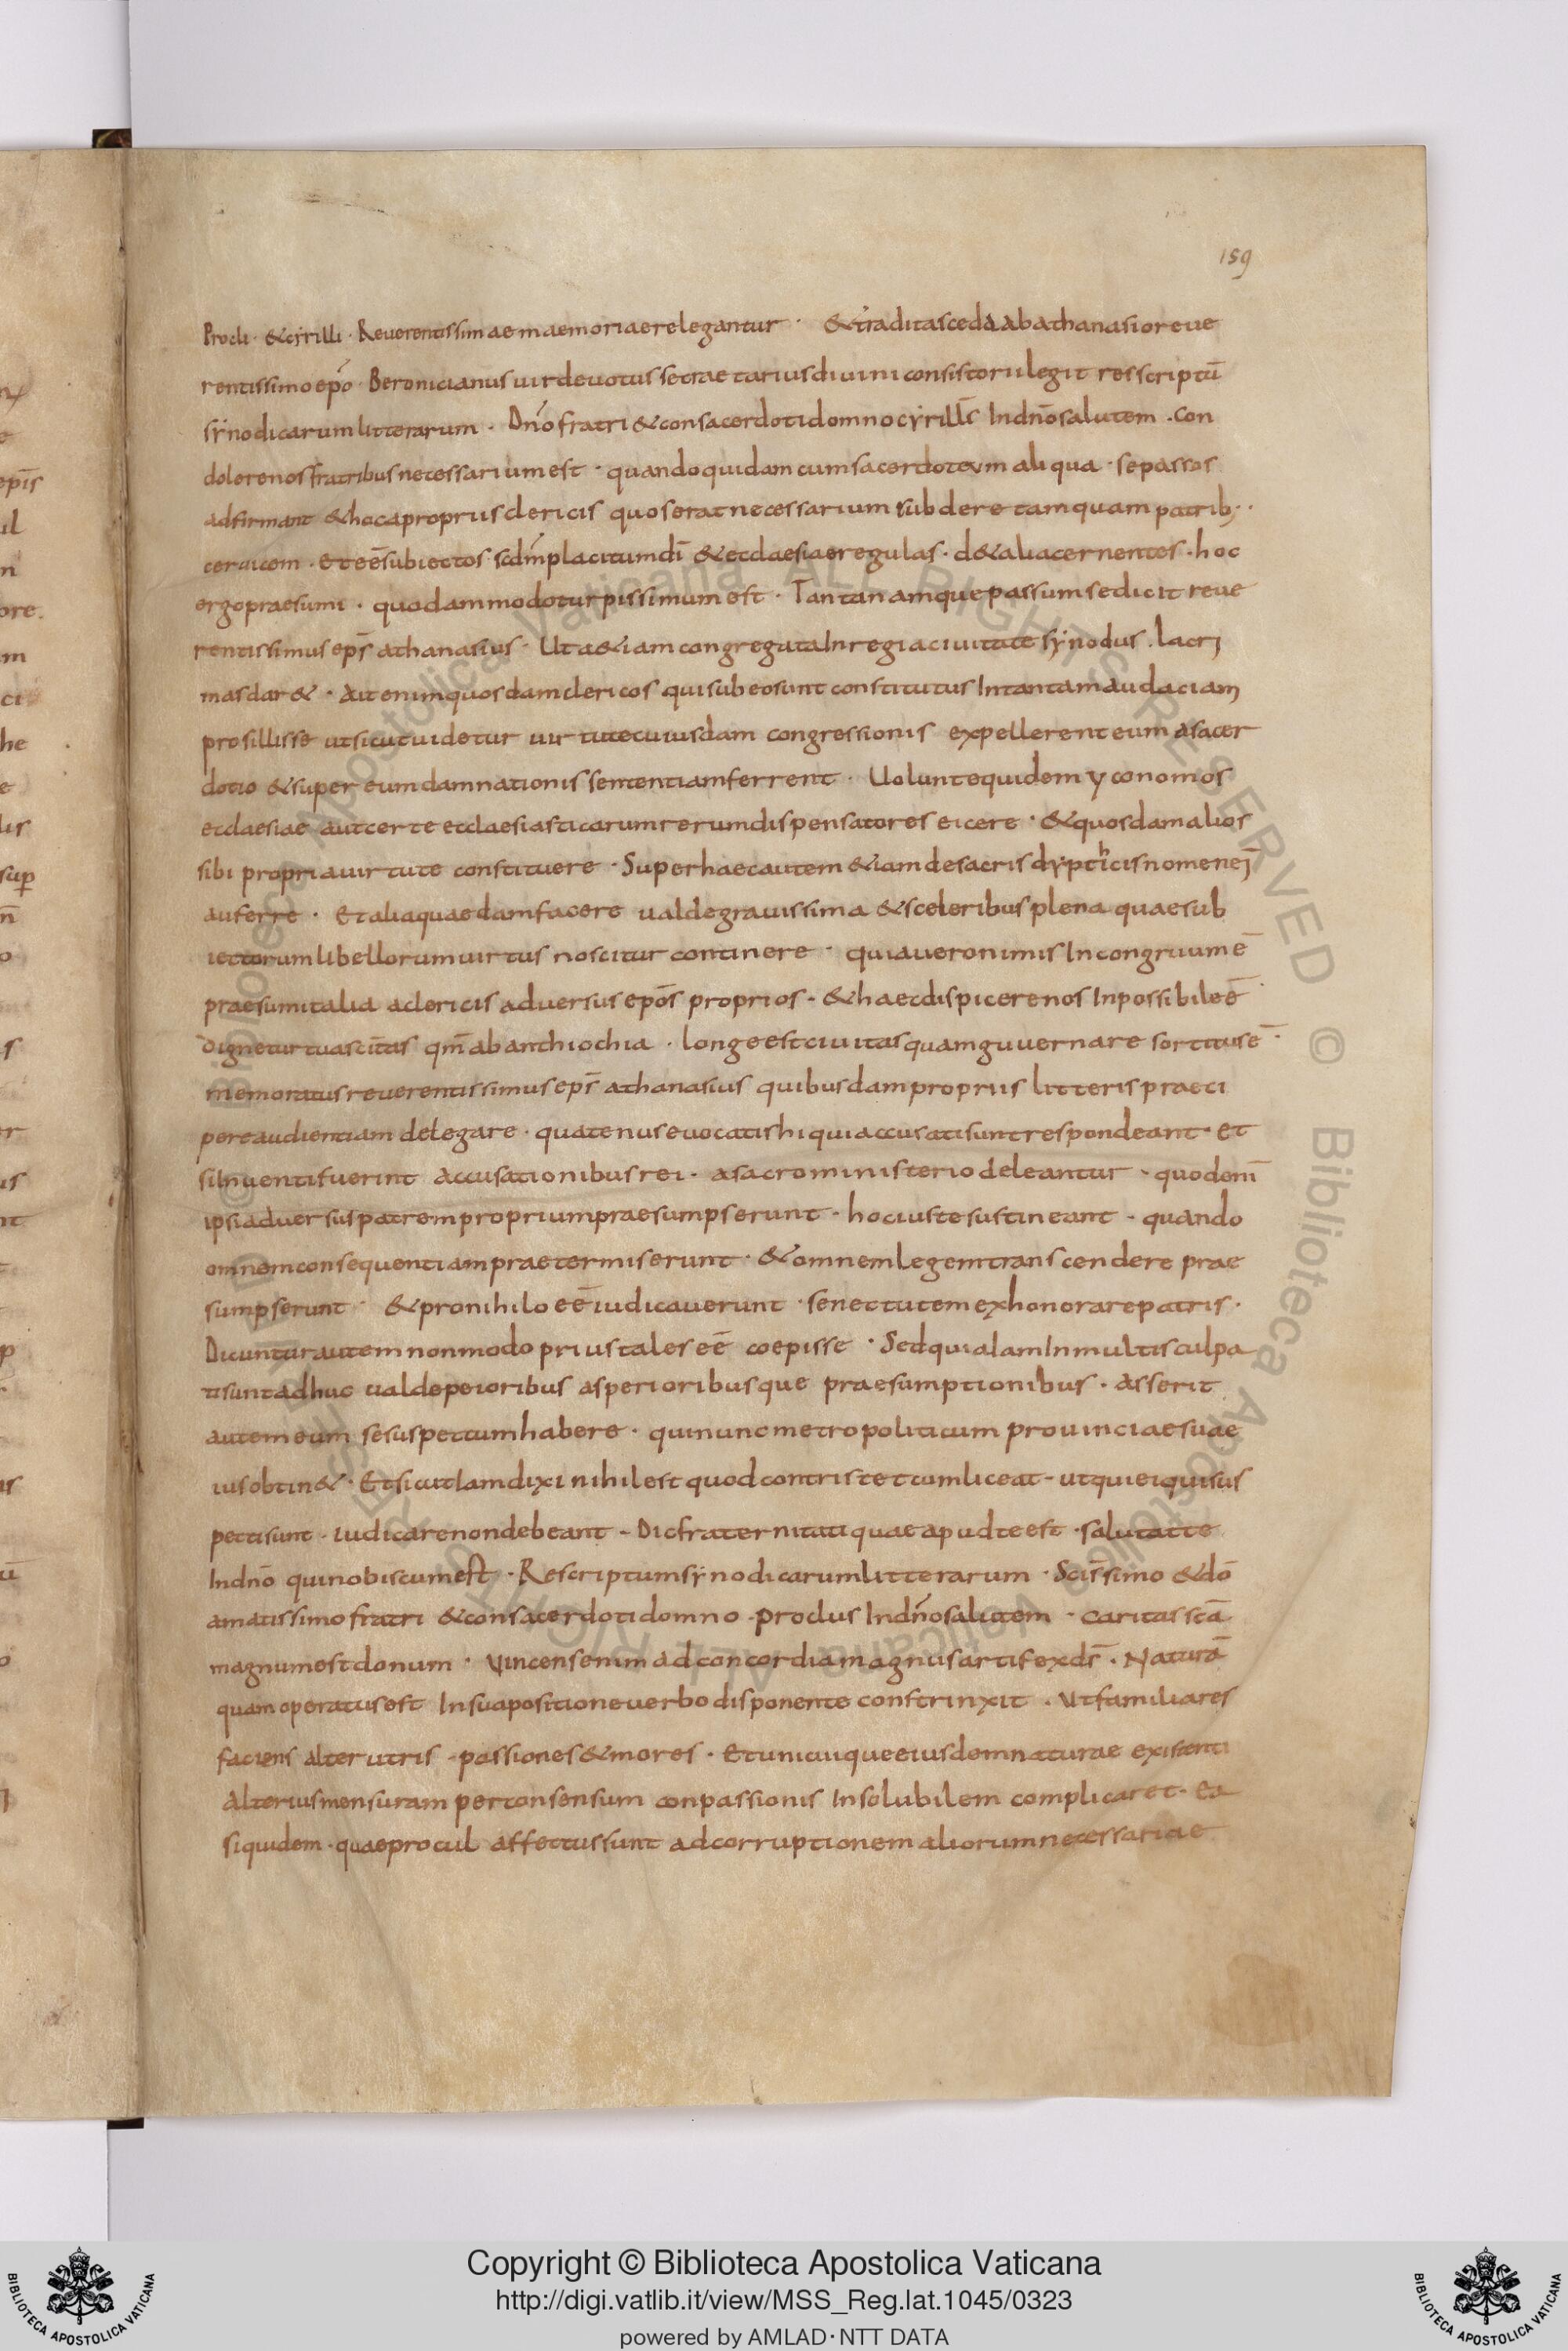 159
Procli · & cyrilli · Reuerentissimae maemoriae relegantur · & tradita sceda ab athanasio reue
rentissimo epo · Beronicianus uir deuotus secraetarius diuini consistorii legit resscriptū
synodicarum litterarum · Dno fratri & consacerdoti domno cyrillꝰ In dno salutem · Con
dolere nos fratribus necessarium est · quando quidam cum sacerdoteum aliqua · se passos
adfirmant & hoc a propriis clericis quos erat necessarium subdere tamquam patrib; ·
ceruicem · et eē subiectos scdm placitum dī & ecclaesiae regulas · d& alia cernentes · hoc
ergo praesumi · quodammodo turpissimum est · Tanta namque passum se dicit reue
rentissimus eps̄ athanasius · Ut a&iam congregata In regia ciuitate synodus · lacri
mas dar& · Ait enim quosdam clericos qui sub eo sunt constitutus In tantam audaciam
prosillisse ut sicut uidetur uirtute cuiusdam congressionis expellerent eum a sacer
dotio & super eum damnationis sententiam ferrent · Uolunt equidem yconomos
ecclaesiae aut certe ecclaesiasticarum rerum dispensatores eicere · & quosdam alios
sibi propria uirtute constituere · Super haec autem &iam de sacris dypticis nomen ei
h
auferre · Et alia quaedam facere ualde grauissima & sceleribus plena quae sub
iectorum libellorum uirtus noscitur continere · quia uero nimis Incongruum ē
praesumi talia a clericis aduersus epōs proprios · & haec dispicere nos Inpossibile ē
Dignetur tua scītas qm̄ ab anthiochia · longe est ciuitas quam guuernare sortitus ē ·
memoratus reuerentissimus eps̄ athanasius quibusdam propriis litteris praeci
pere audientiam delegare · quatenus euocatis hi qui accusati sunt respondeant · et
si Inuenti fuerint accusationibus rei · a sacro ministerio deleantur · quod enī
ipsi aduersus patrem proprium praesumpserunt · hoc iuste sustineant · quando
omnem consequentiam praetermiserunt · & omnem legem transcendere prae
sumpserunt · & pro nihilo eē iudicauerunt · senectutem exhonorare patris ·
Dicuntur autem non modo prius tales eē coepisse · Sed quia Iam In multis culpa
ti sunt adhuc ualde peioribus asperioribusque praesumptionibus · asserit
autem eum se suspectum habere · qui nunc metropoliticum prouinciae suae
ius obtin& · Et sicut Iam dixi nihil est quod contristet cum liceat · ut qui ei qui sus
pecti sunt · iudicare non debeant · Dic fraternitati quae apud te est · salutat te
In dnō qui nobiscum est · Rescriptum synodicarum litterarum · Scissimo & dō
amatissimo fratri & consacerdoti domno · proclus In dnō salutem · Caritas scā
magnum est donum · Vincens enim ad concordia magnus artifex ds̄ · Naturā
quam operatus est In sua positione uerbo disponente constrinxit · Ut familiares
faciens alterutris · passiones & mores · Et unicuique eiusdem naturae existenti
alterius mensuram per consensum conpassionis Insolubilem complicaret · Ea
siquidem · quae procul affectus sunt ad corruptionem aliorum necessariae
Copyright © Biblioteca Apostolica Vaticana
http://digi.vatlib.it/view/MSS_Reg.lat.1045/0323
powered by AMLAD·NTT DATA